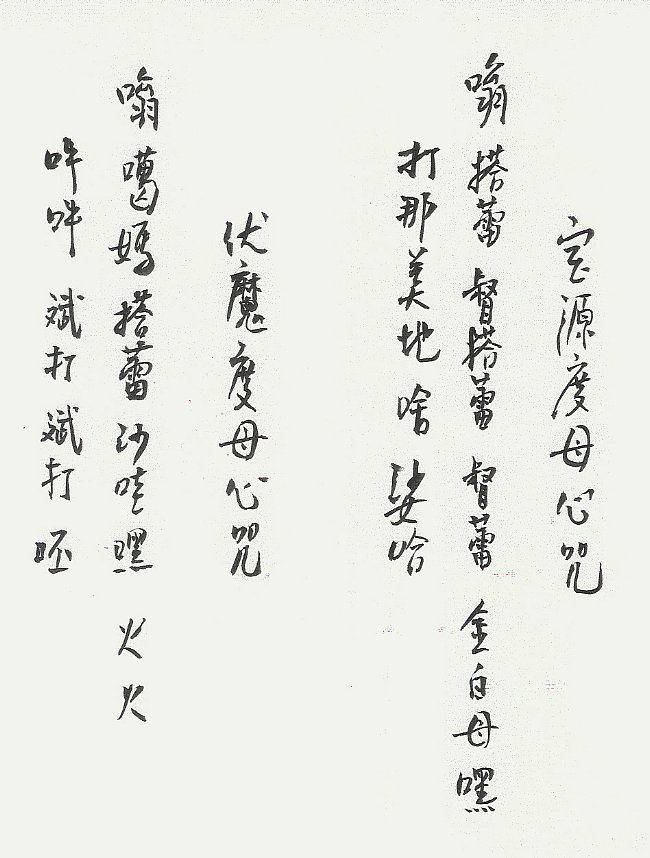 宝源度母心咒
嗡 搭蕾 督搭蕾 督蕾 金白母嘿
打那美地 啥 娑哈
伏魔度母心咒
嗡 噶媽搭蕾 沙哇嘿 火火
吽吽 斌打 斌打 呸